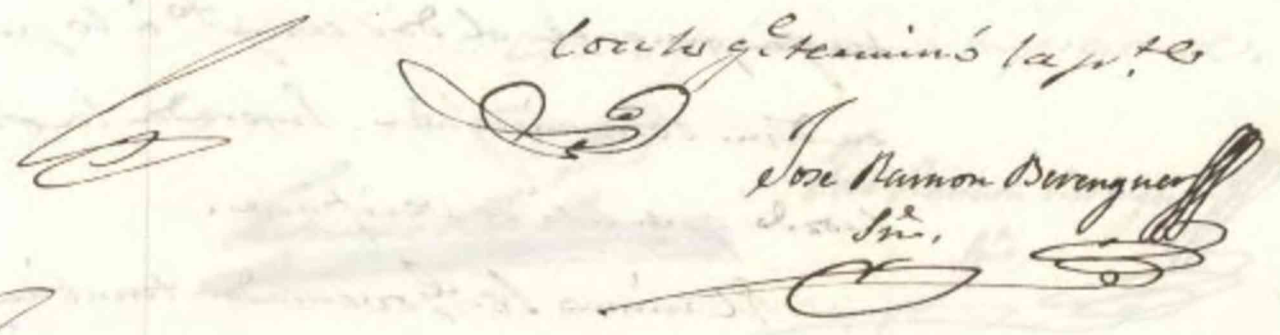 Con lo q.e terminó la p.te
Jose Ramon Berenguer
Srio.